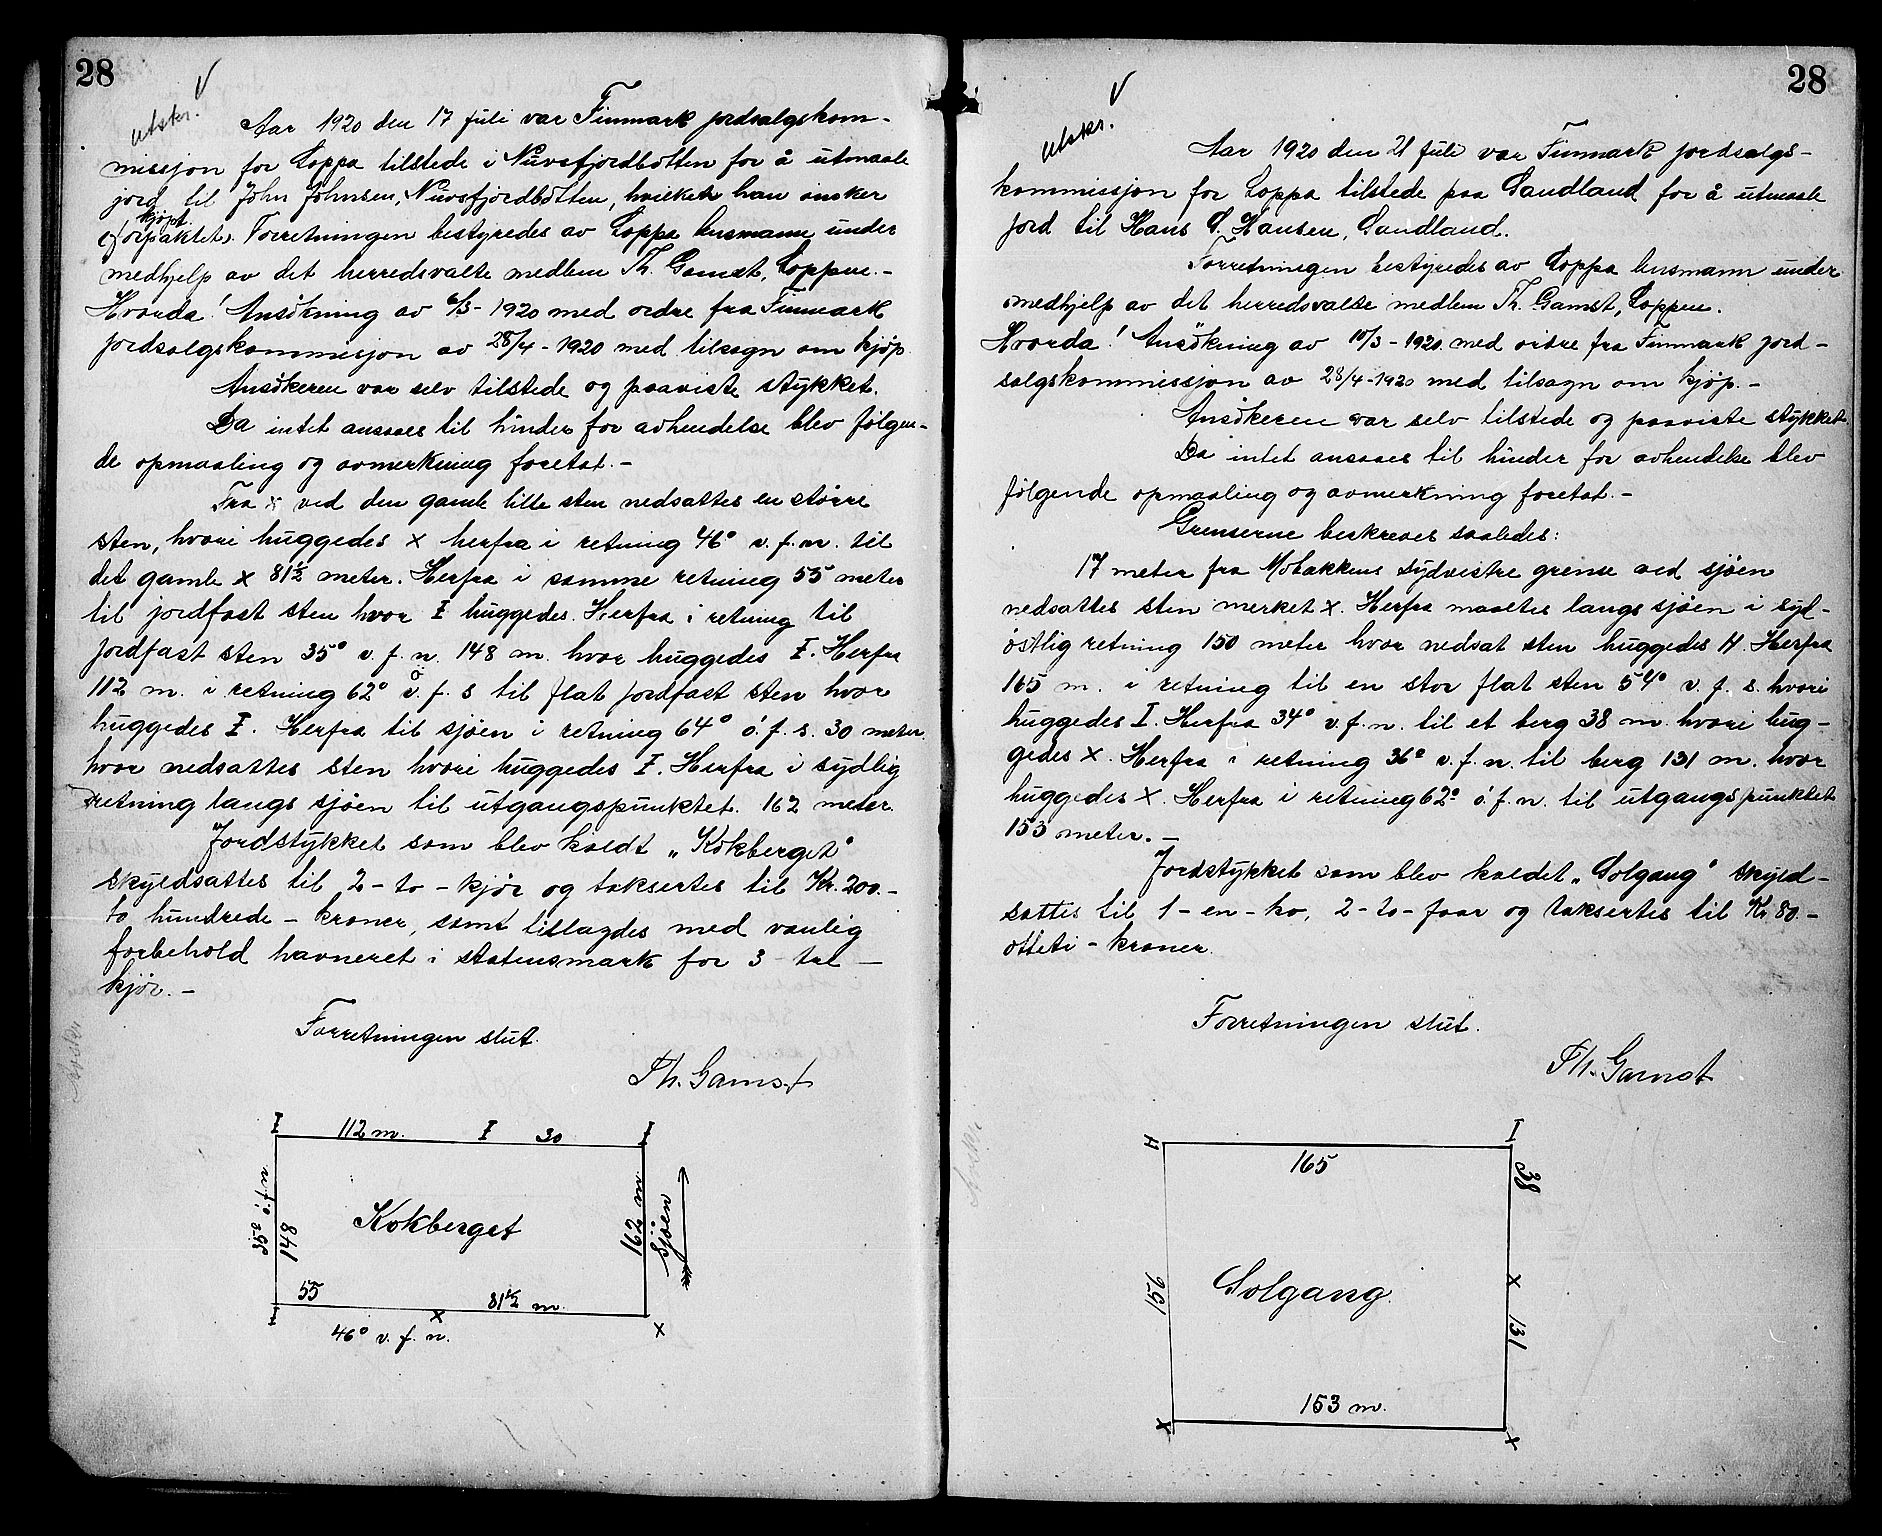 28
utskr. V
Aar 1920 den 17 juli var Finmark jordsalgskom-
missjon for Loppa tilstede i Nuvsfjordbotten for å utmaale
jord til John Johnsen, Nuvsfjordbotten, hvilket han ønsker
kjøpt.
forpaktet. Forretningen bestyredes av Loppa lensmann under
medhjelp av det herredsvalte medlem Th. Gamst, Loppen.-
Hvorda! Ansökning av 6/3 - 1920 med ordre fra Finmark
jordsalgskommisjon av 28/4 - 1920 med tilsagn om kjøp.
Ansökeren var selv tilstede og paaviste stykket.
Da intet ansaaes til hinder for avhendelse blev følgen-
de opmaaling og avmerkning foretat.-
Fra x ved den gamle lille sten nedsattes en större
sten, hvori huggedes x herfra i retning 46° v. f. n. til
det gamle x 81½ meter. Herfra i samme retning 55 meter
til jordfast sten hvor I huggedes. Herfra i retning til
jordfast sten 35° v. f. n. 148 m. hvor huggedes I. Herfra
112 m. i retning 62° ö. f. s til flat jordfast sten hvor
huggedes I. Herfra til sjøen i retning 64° ö. f. s. 30 meter
hvor nedsattes sten hvori huggedes I. Herfra i sydlig
retning langs sjøen til utgangspunktet. 162 meter.
Jordstykket som blev kaldt „Kokberget"
skyldsattes til 2 - to - kjør og taksertes til Kr. 200.-
to hundrede - kroner, samt tillagdes med vanlig
forbehold havneret i statensmark for 3 - tre -
kjör. -
Forretningen slut.
Th. Gamst
I 112 m. I 30 I
35° ö. f. n.
148
Kokberget
162 m
Sjøen
55 81½ m.
I x x
46° v. f. n.
28
utskr. V
Aar 1920 den 21 juli var Finmark jordsalgs-
kommissjon for Loppa tilstede paa Sandland for å utmaale
jord til Hans S. Hansen, Sandland.
Forretningen bestyredes av Loppa lensmann under
medhjelp av det herredsvalte medlem Th. Gamst, Loppen.
Hvorda! Ansökning av 10/3 - 1920 med ordre fra Finmark jord-
salgskommissjon av 28/4 - 1920 med tilsagn om kjøp. -
Ansökeren var selv tilstede og paaviste stykket.
Da intet ansaaes til hinder for avhendelse blev
følgende opmaaling og avmerkning foretat. -
Grenserne beskreves saaledes:
17 meter fra Mobakkens sydvestre grense ved sjøen
nedsattes sten merket x. Herfra maaltes langs sjøen i syd-
östlig retning 150 meter hvor nedsat sten huggedes H. Herfra
165 m. i retning til en stor flat sten 54° v. f. s. hvori
huggedes I. Herfra 34° v. f. n. til et berg 38 m. hvori hug-
gedes x. Herfra i retning 36° v. f. n. til berg 131 m. hvor
huggedes x. Herfra i retning 62° ö. f. n. til utgangspunktet
153 meter. -
Jordstykket som blev kaldet „Solgang" skyld-
sattes til 1 - en - ko, 2 - to - faar og taksertes til Kr. 80.-
otteti - kroner.
Forretningen slut.
Th. Gamst
H 165 I
38
150
Solgang
x
131
153 m.
x x